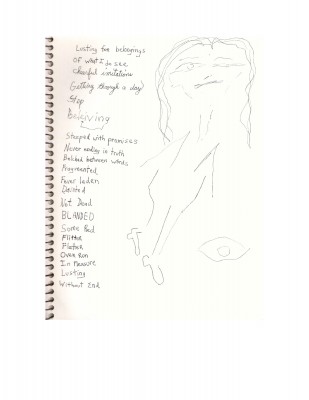 Lusting for belongings
of what I do see
Cheerful invitations
Getting through a day
Stop
Believing
Steeped with promises
Never ending in truth
Between words
Fragmented
Fever laden
Not Dead
BLANDED
Some Bad
Flitter
Flatter
Over Run
In Measure
Lusting
Without End